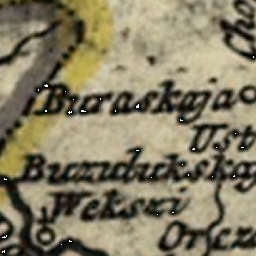 Cho
Buraskaja
Ust
Buzudukskaj
Wekszi
Orcz